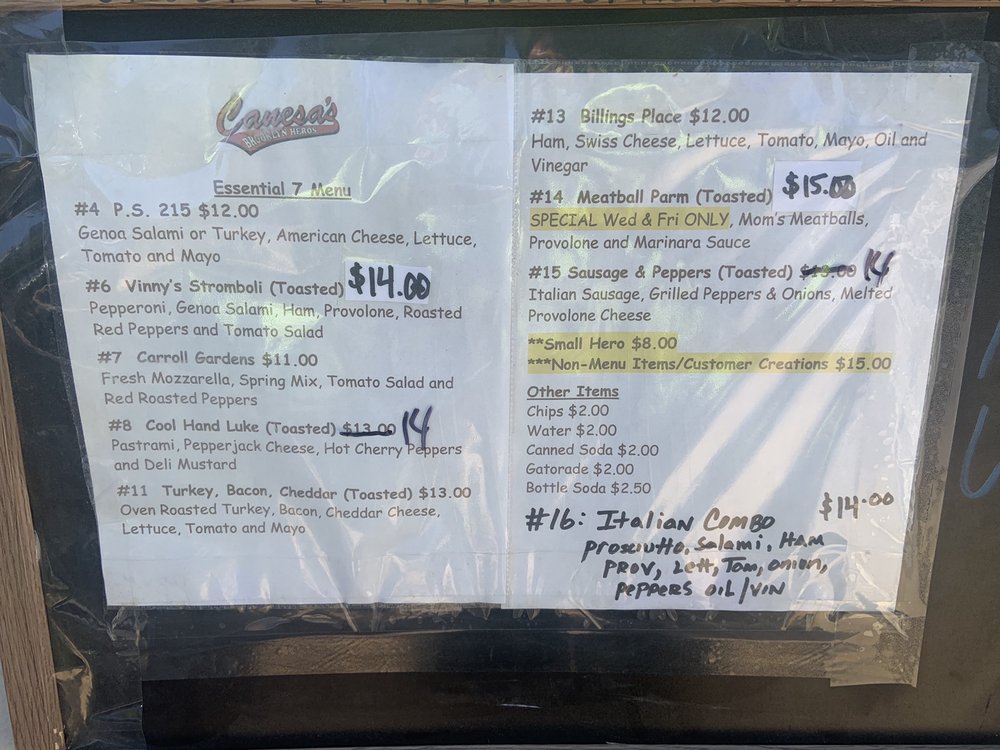 Canesa's
BROOKLYN HEROS
Essential 7 Menu
#4 P.S. 215 $12.00
Genoa Salami or Turkey, American Cheese, Lettuce,
Tomato and Mayo
#6 Vinny's Stromboli (Toasted) $14.00
Pepperoni, Genoa Salami, Ham, Provolone, Roasted
Red Peppers and Tomato Salad
#7 Carroll Gardens $11.00
Fresh Mozzarella, Spring Mix, Tomato Salad and
Red Roasted Peppers
#8 Cool Hand Luke (Toasted) $13.00 14
Pastrami, Pepperjack Cheese, Hot Cherry Peppers
and Deli Mustard
#11 Turkey, Bacon, Cheddar (Toasted) $13.00
Oven Roasted Turkey, Bacon, Cheddar Cheese,
Lettuce, Tomato and Mayo
#13 Billings Place $12.00
Ham, Swiss Cheese, Lettuce, Tomato, Mayo, Oil and
Vinegar
#14 Meatball Parm (Toasted) $15.00
SPECIAL Wed & Fri ONLY, Mom's Meatballs,
Provolone and Marinara Sauce
#15 Sausage & Peppers (Toasted) $13.00 14
Italian Sausage, Grilled Peppers & Onions, Melted
Provolone Cheese
**Small Hero $8.00
***Non-Menu Items/Customer Creations $15.00
Other Items
Chips $2.00
Water $2.00
Canned Soda $2.00
Gatorade $2.00
Bottle Soda $2.50
#16: Italian Combo $14.00
Prosciutto, Salami, HAM
PROV, Lett, Tom, onion,
PePPERS OIL/VIN